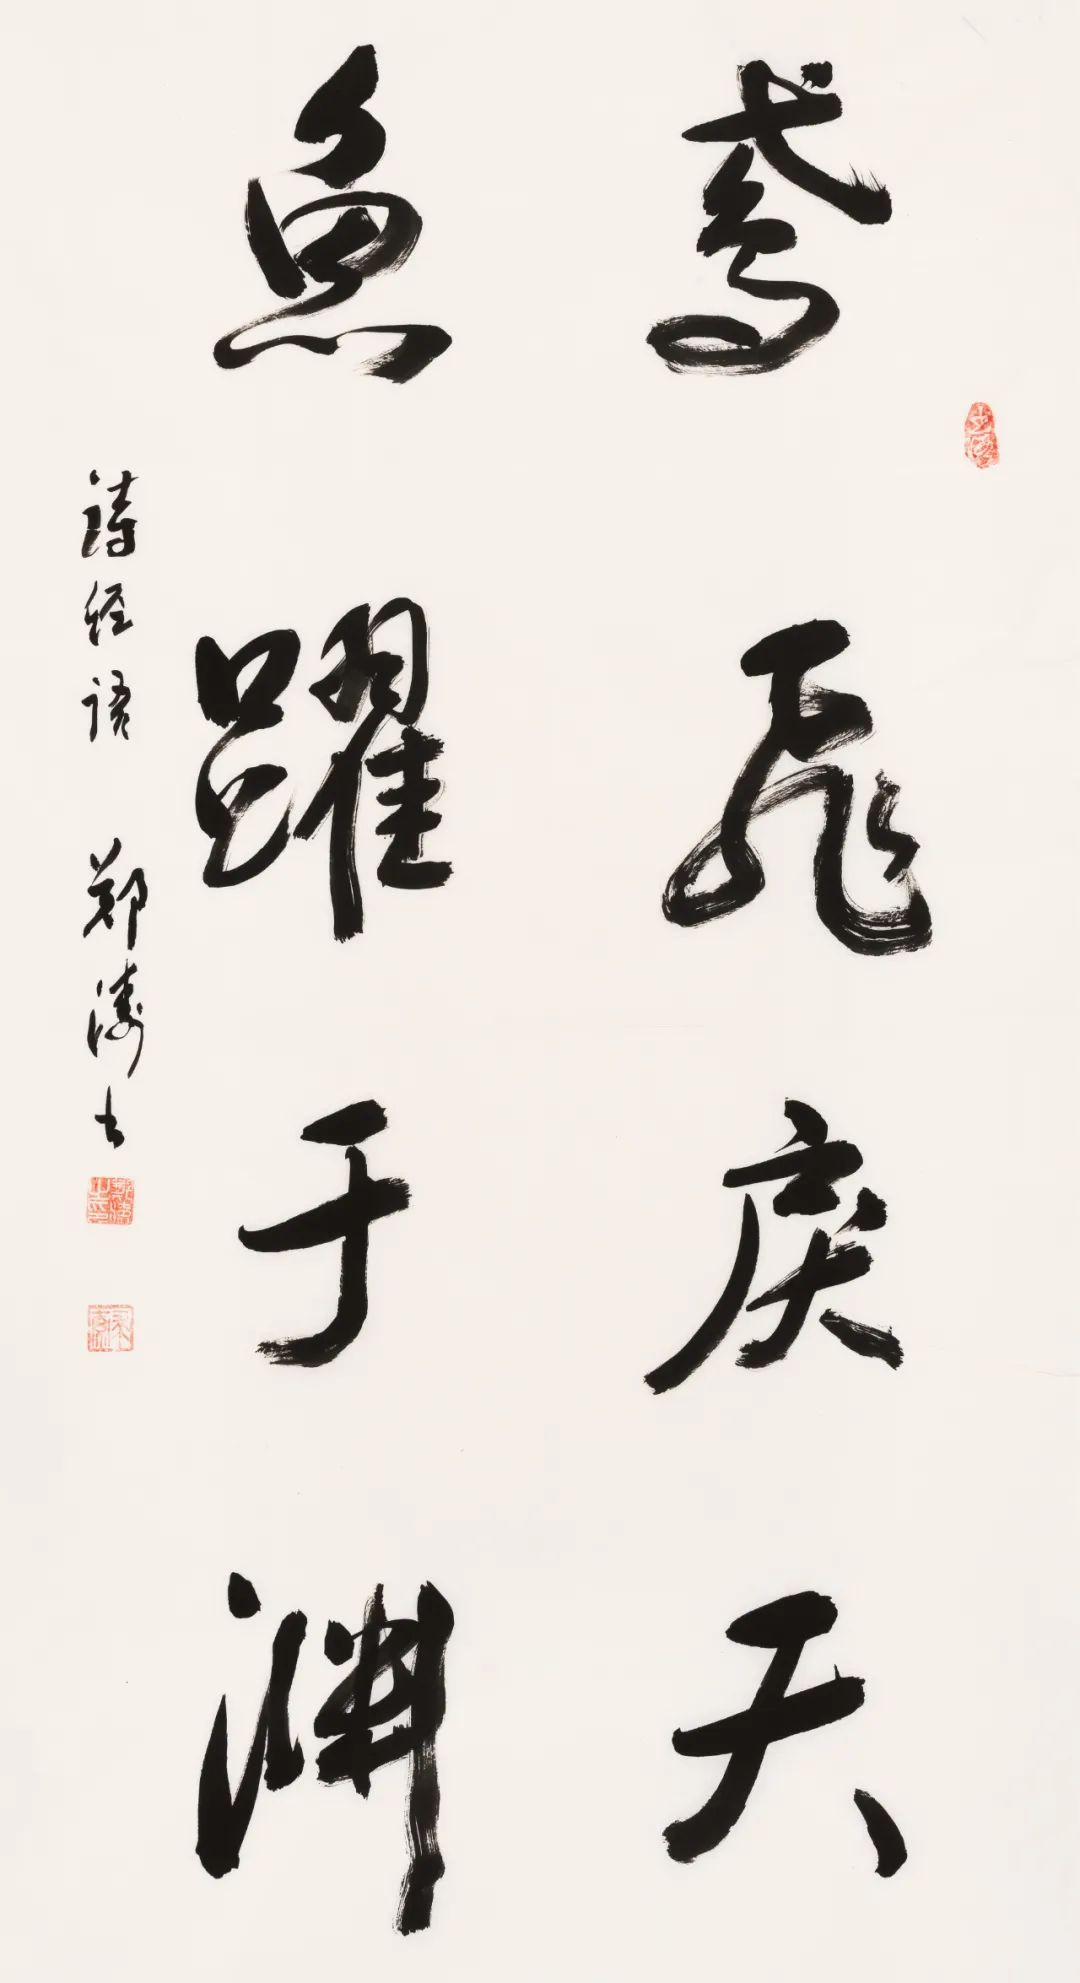 鸢飞戾天
鱼躍于渊
诗经语 郑涛书